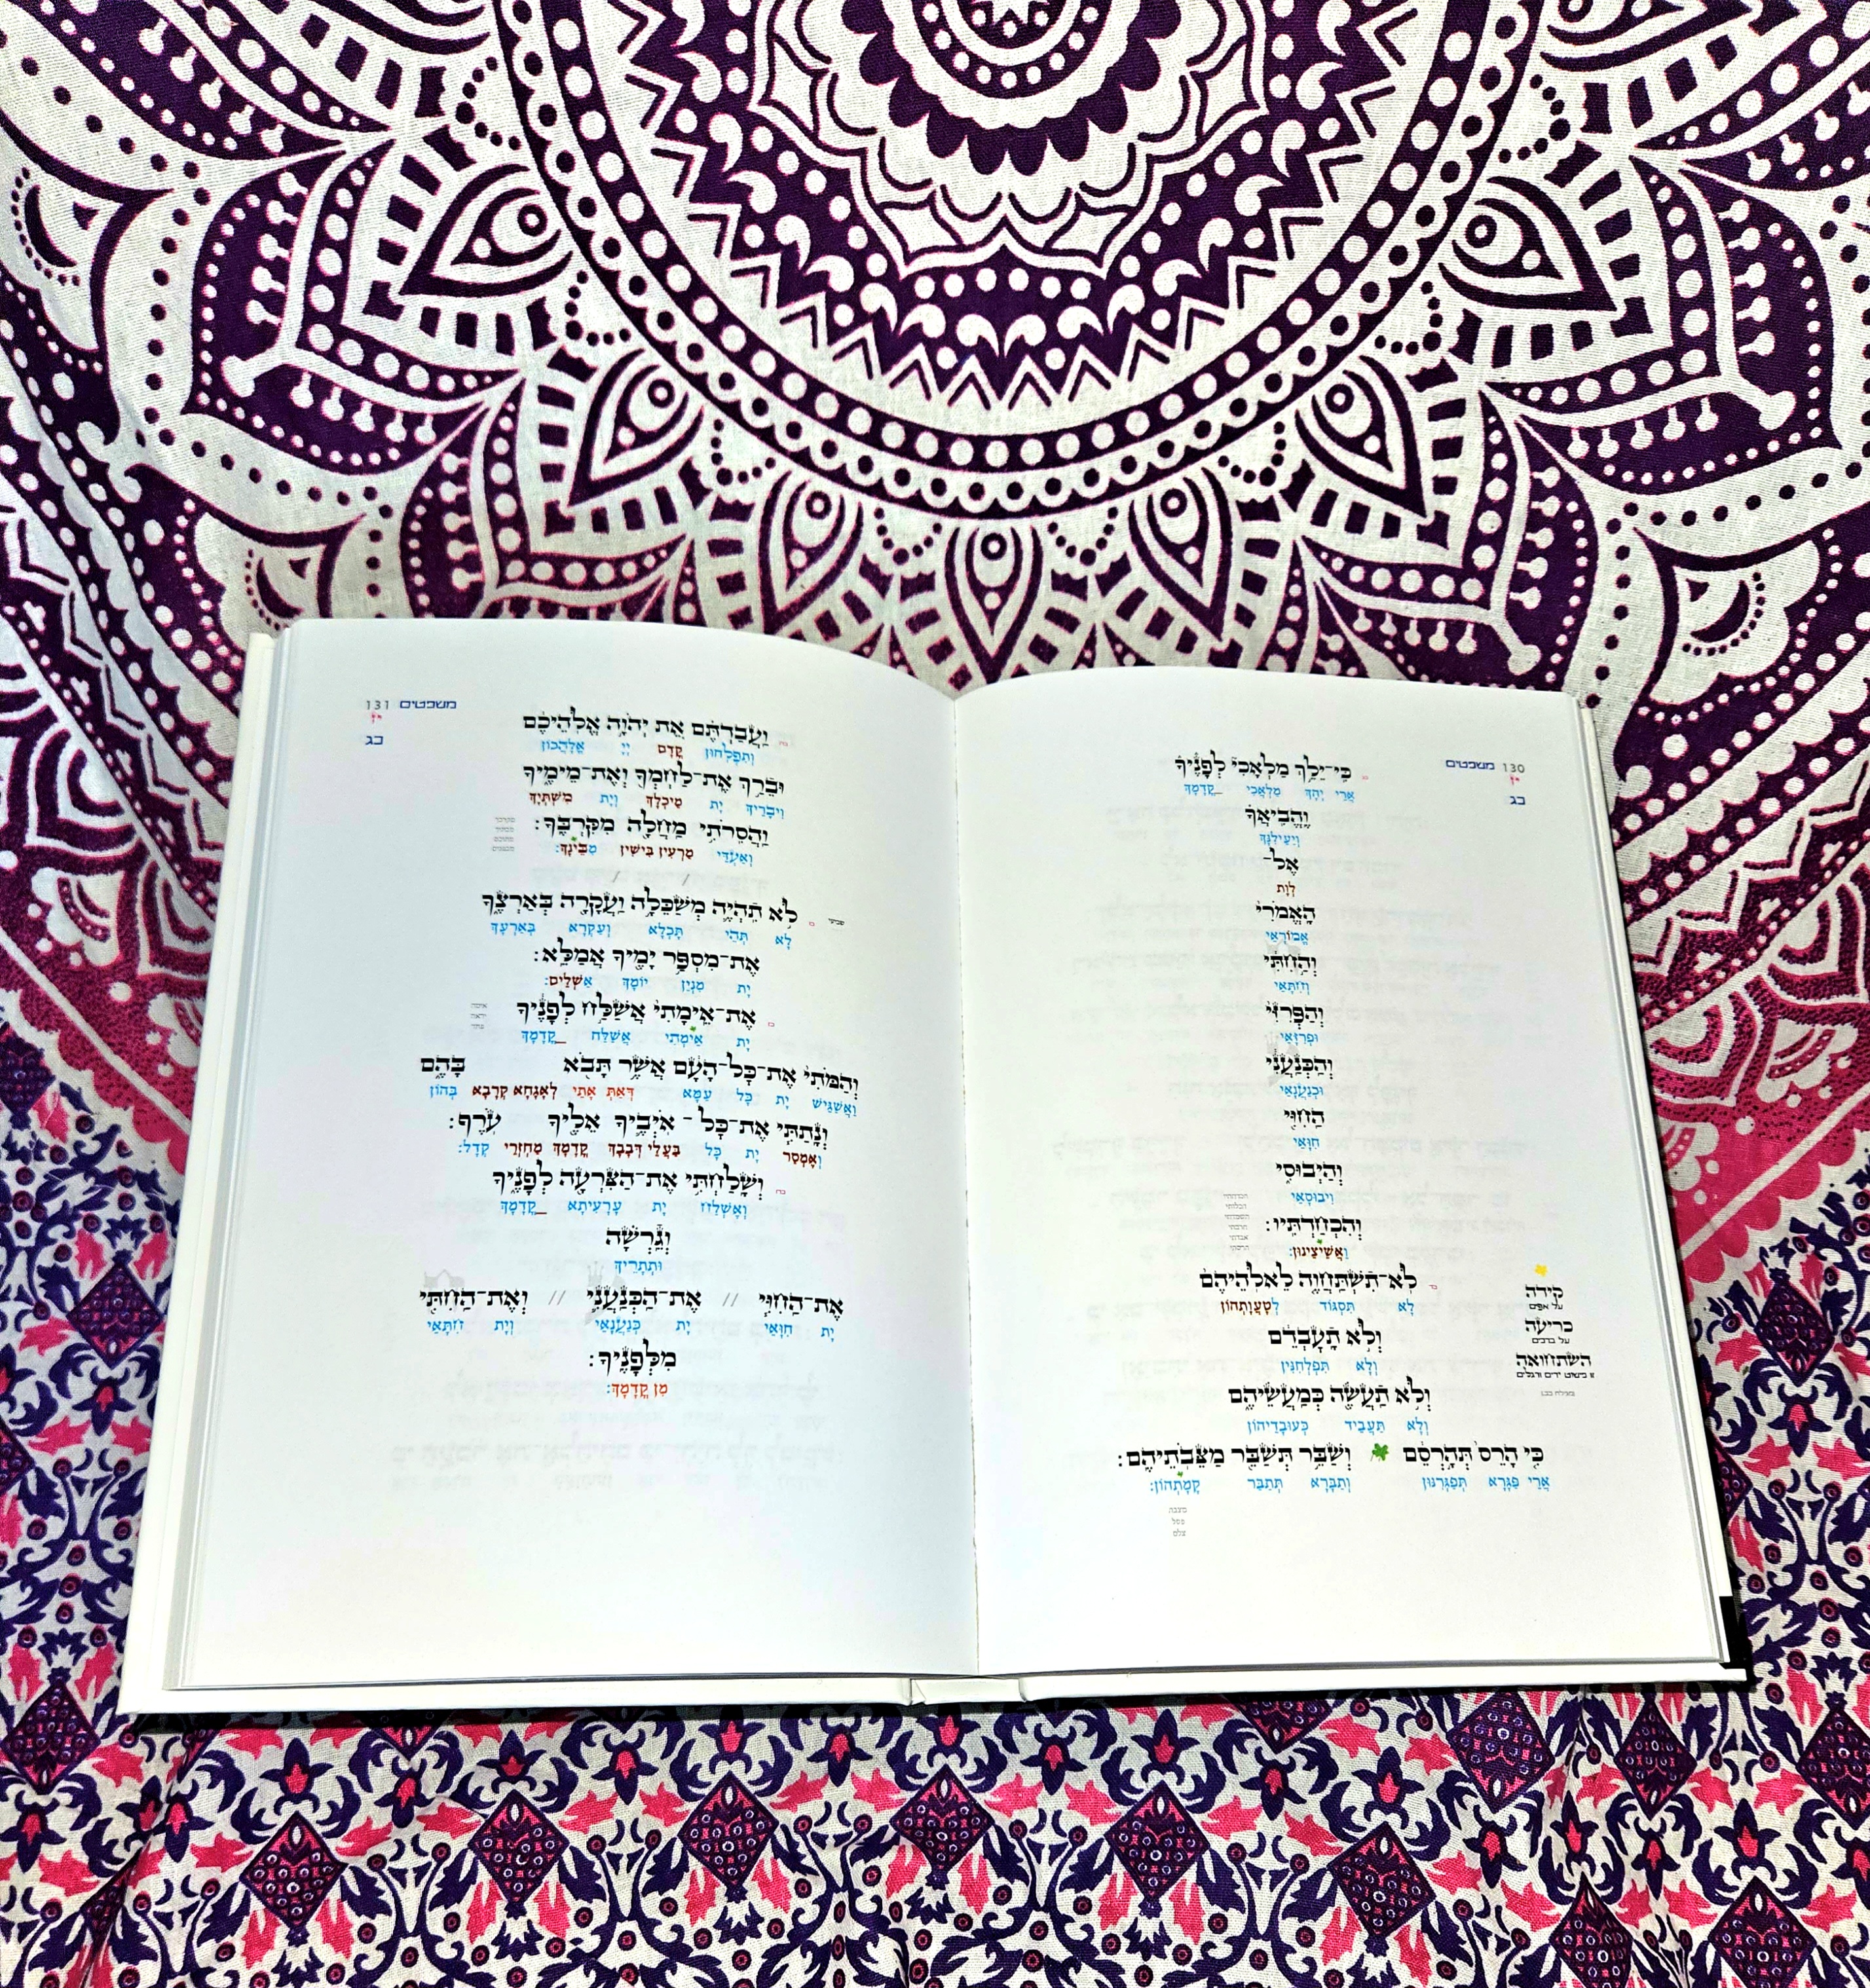 130 משפטים
יז
כג
כִּי־יֵלֵךְ מַלְאָכִי לְפָנֶיךָ
אֲרֵי יְהָךְ מַלְאֲכִי קֳדָמָךְ
וֶהֱבִיאֲךָ
וְיַעֵילִנָּךְ
אֶל־
לְוָת
הָאֱמֹרִי
אֱמוֹרָאֵי
וְהַחִתִּי
וְחִתָּאֵי
וְהַפְּרִזִּי
וּפְרִזָּאֵי
וְהַכְּנַעֲנִי
וּכְנַעֲנָאֵי
הַחִוִּי
חִוָּאֵי
וְהַיְבוּסִי
וִיבוּסָאֵי
וְהִכְחַדְתִּיו:
וַאֲשֵׁיצֵינוּן:
לֹא־תִשְׁתַּחֲוֶה לֵאלֹהֵיהֶם
לָא תִסְגּוֹד לְטַעֲוָתְהוֹן
וְלֹא תָעָבְדֵם
וְלָא תִפְלְחִנִּין
וְלֹא תַעֲשֶׂה כְּמַעֲשֵׂיהֶם
וְלָא תַעֲבֵיד כְּעוּבָדֵיהוֹן
כִּי הָרֵס תְּהָרְסֵם וְשַׁבֵּר תְּשַׁבֵּר מַצֵּבֹתֵיהֶם:
אֲרֵי פַגָּרָא תְּפַגְּרִנּוּן וְתַבָּרָא תְתַבַּר קָמָתְהוֹן:
מצבה
פסל
צלם
קידה
על אפים
כריעה
על ברכים
השתחואה
זו פישוט ידים ורגלים
131 משפטים
יז
כג
וַעֲבַדְתֶּם אֵת יְהוָה אֱלֹהֵיכֶם
וְתִפְלְחוּן קֳדָם יְיָ אֱלָהֲכוֹן
וּבֵרַךְ אֶת־לַחְמְךָ וְאֶת־מֵימֶיךָ
וִיבָרֵיךְ יָת מֵיכְלָךְ וְיָת מִשְׁתְּיָךְ
וַהֲסִרֹתִי מַחֲלָה מִקִּרְבֶּךָ:
וְאַעְדֵּי מַרְעִין בִּישִׁין מִבֵּינָךְ:
לֹא תִהְיֶה מְשַׁכֵּלָה וַעֲקָרָה בְּאַרְצֶךָ
לָא תְהֵי תָּכְלָא וְעַקְרָא בְּאַרְעָךְ
אֶת־מִסְפַּר יָמֶיךָ אֲמַלֵּא:
יָת מִנְיַן יוֹמָךְ אַשְׁלֵים:
אֶת־אֵימָתִי אֲשַׁלַּח לְפָנֶיךָ
יָת אֵימְתִי אֲשַׁלַּח קֳדָמָךְ
וְהַמֹּתִי אֶת־כָּל־הָעָם אֲשֶׁר תָּבֹא בָּהֶם
וַאֲשַׁגֵּישׁ יָת כָּל עַמָּא דְּאַתְּ אָתֵי לְאַגָּחָא קְרָבָא בְּהוֹן
וְנָתַתִּי אֶת־כָּל־אֹיְבֶיךָ אֵלֶיךָ עֹרֶף:
וְאֶמְסַר יָת כָּל בַּעֲלֵי דְּבָבָךְ קֳדָמָךְ מְחַזְּרֵי קְדָל:
וְשָׁלַחְתִּי אֶת־הַצִּרְעָה לְפָנֶיךָ
וְאֶשְׁלַח יָת עָרָעִיתָא קֳדָמָךְ
וְגֵרְשָׁה
וּתְתָרֵיךְ
אֶת־הַחִוִּי // אֶת־הַכְּנַעֲנִי // וְאֶת־הַחִתִּי
יָת חִוָּאֵי יָת כְּנַעֲנָאֵי וְיָת חִתָּאֵי
מִלְּפָנֶיךָ:
מִן קֳדָמָךְ: